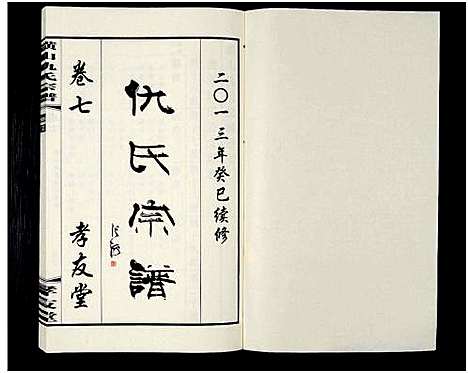 二〇一三年癸巳续修
仇氏宗譜
卷七
孝友堂